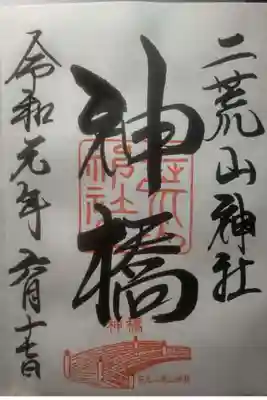 二荒山神社
神橋
令和元年六月十七日
神橋